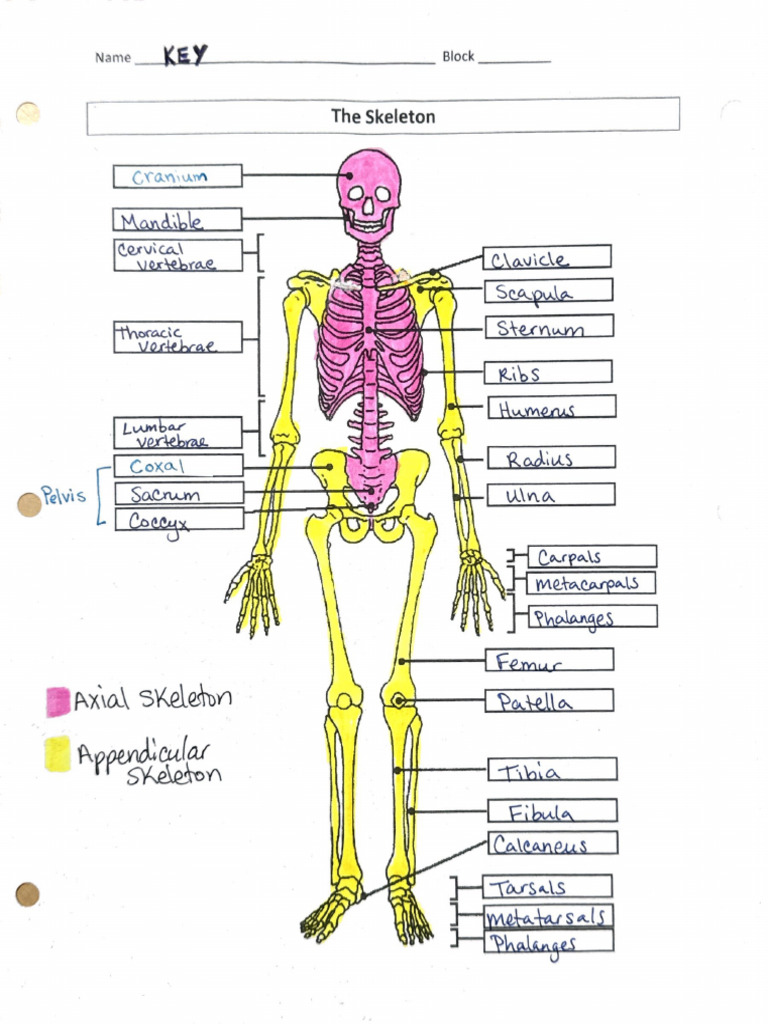 Name KEY Block
The Skeleton
Cranium
Mandible
Cervical
vertebrae
Thoracic
vertebrae
Lumbar
vertebrae
Coxal
Pelvis
Sacrum
Coccyx
Clavicle
Scapula
Sternum
Ribs
Humerus
Radius
Ulna
Carpals
metacarpals
Phalanges
Femur
Patella
Tibia
Fibula
Calcaneus
Tarsals
metatarsals
Phalanges
Axial Skeleton
Appendicular
Skeleton